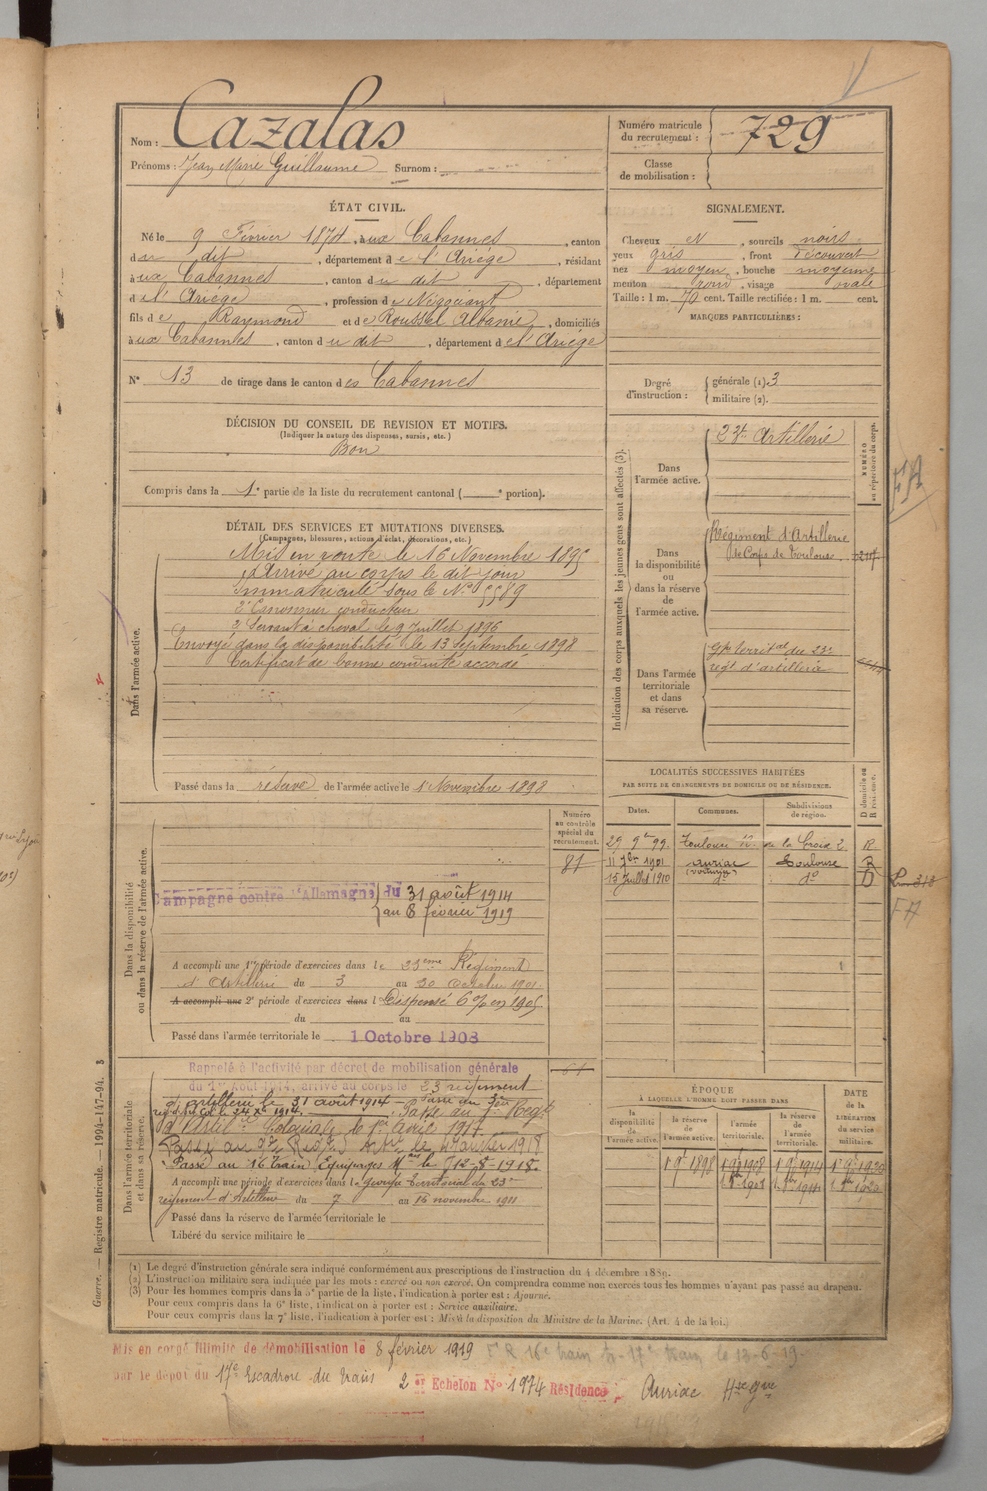 Nom : Cazalas
Prénoms : Jean Marie Guillaume Surnom :
Numéro matricule du recrutement : 729
Classe de mobilisation :
ÉTAT CIVIL.
Né le 9 Février 1874, à ux Cabannes, canton
du dit, département de l'Ariège, résidant
à ux Cabannes, canton du dit, département
de l'Ariège, profession de Négociant
fils de Raymond et de Roussel Albanie, domiciliés
à ux Cabannes, canton du dit, département de l'Ariège
N° 13 de tirage dans le canton des Cabannes
SIGNALEMENT.
Cheveux N, sourcils noirs
yeux gris, front découvert
nez moyen, bouche moyenne
menton rond, visage ovale
Taille : 1 m. 70 cent. Taille rectifiée : 1 m. cent.
MARQUES PARTICULIÈRES :
Degré d'instruction : générale (1). 3
militaire (2).
DÉCISION DU CONSEIL DE REVISION ET MOTIFS.
(Indiquer la nature des dispenses, sursis, etc.)
Bon
Compris dans la 1e partie de la liste du recrutement cantonal ( e portion).
DÉTAIL DES SERVICES ET MUTATIONS DIVERSES.
(Campagnes, blessures, actions d'éclat, décorations, etc.)
Dans l'armée active.
Mis en route le 16 Novembre 1895
Arrivé au corps le dit jour
Immatriculé sous le N° 5589
2e Canonnier conducteur
2e Servant à cheval le 9 Juillet 1896
Envoyé dans la disponibilité le 13 Septembre 1898
Certificat de bonne conduite accordé
Passé dans la réserve de l'armée active le 1 Novembre 1898
Indication des corps auxquels les jeunes gens sont affectés (3).
NUMÉRO au répertoire du corps.
Dans l'armée active.
23e Artillerie
EA
Dans la disponibilité ou dans la réserve de l'armée active.
Régiment d'Artillerie
de Corps de Toulouse
Dans l'armée territoriale et dans sa réserve.
Gpe territal du 23e
régt d'artillerie
LOCALITÉS SUCCESSIVES HABITÉES
PAR SUITE DE CHANGEMENTS DE DOMICILE OU DE RÉSIDENCE.
Dates. Communes. Subdivisions de région. D domicile ou R résidence.
29 9bre 99. Toulouse de la Croix R.
11 7bre 1901 Auriac Toulouse R
15 Juillet 1910 do do D
Numéro au contrôle spécial du recrutement.
81
Dans la disponibilité ou dans la réserve de l'armée active.
Campagne contre l'Allemagne du 31 août 1914
au 6 février 1919
A accompli une 1re période d'exercices dans le 23ème Régiment
d'Artillerie du 3 au 30 octobre 1901
A accompli une 2e période d'exercices dans l Dispensé 6% en 1905
du au
Passé dans l'armée territoriale le 1 Octobre 1908
Dans l'armée territoriale et dans sa réserve.
Rappelé à l'activité par décret de mobilisation générale
du 1er Août 1914, arrivé au corps le 23 régiment
d'artillerie le 31 août 1914 - Passé au 3eu
Passé au 1er Regt
d'Artil ie Coloniale le 1er Avril 1917
Passé au 16 Train Equipages Mres le 12-8-1918.
A accompli une période d'exercices dans le Groupe territorial du 23e
régiment d'Artillerie du 7 au 16 novembre 1911
Passé dans la réserve de l'armée territoriale le
Libéré du service militaire le
ÉPOQUE
À LAQUELLE L'HOMME DOIT PASSER DANS
la disponibilité de l'armée active. la réserve de l'armée active. l'armée territoriale. la réserve de l'armée territoriale.
DATE de la LIBÉRATION du service militaire.
1 9e 1898 1 9e 1908 1 9e 1914 1 9e 1920
(1) Le degré d'instruction générale sera indiqué conformément aux prescriptions de l'instruction du 4 décembre 1889.
(2) L'instruction militaire sera indiquée par les mots : exercé ou non exercé. On comprendra comme non exercés tous les hommes n'ayant pas passé au drapeau.
(3) Pour les hommes compris dans la 5e partie de la liste, l'indication à porter est : Ajourné.
Pour ceux compris dans la 6e liste, l'indication à porter est : Service auxiliaire.
Pour ceux compris dans la 7e liste, l'indication à porter est : Mis à la disposition du Ministre de la Marine. (Art. 4 de la loi.)
Guerre. — Registre matricule. — 1994-147-94.
Mis en congé illimité de démobilisation le 8 février 1919
par le dépôt du 17e Escadron du train 2 er Echelon N° 1974 Résidence : Auriac Hte Gne